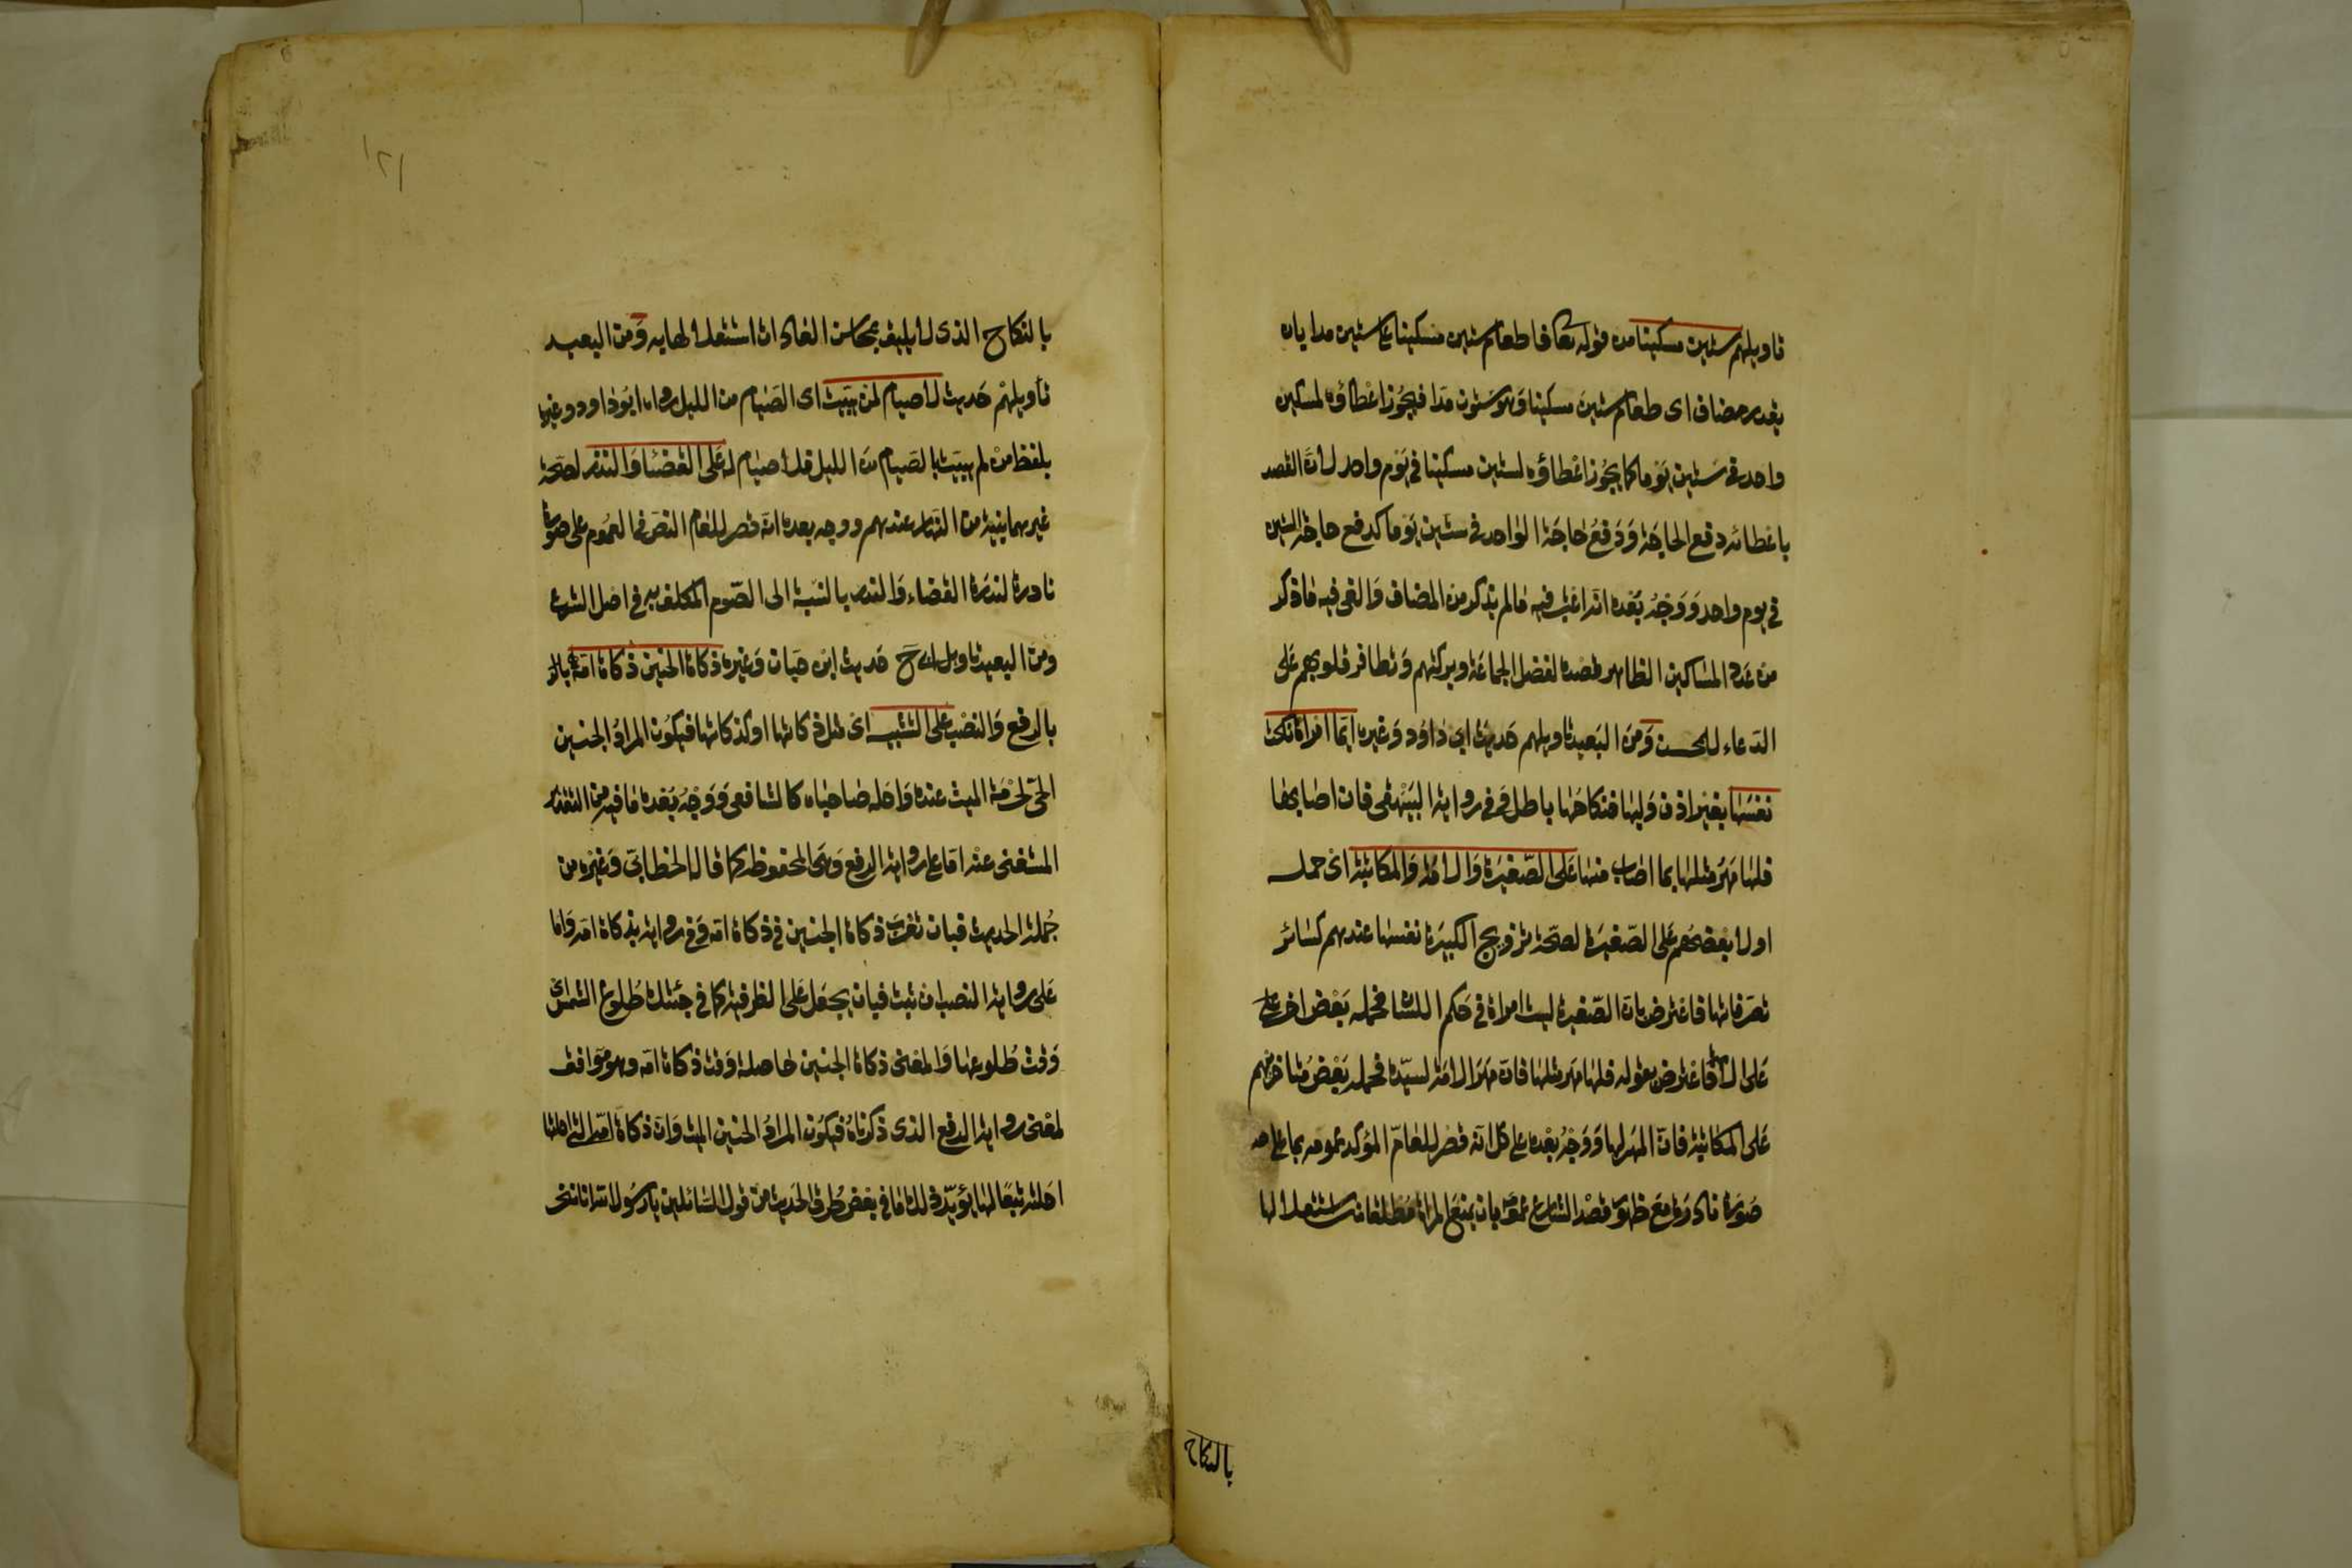 تاويلهم ستين مسكينا من قوله تعا فاطعام ستين مسكينا على ستين مدا بان
يقدر مضاف اى طعام ستين مسكينا وهو ستون مدا فيجوز اعطاؤه لمسكين
واحد في ستين يوما كما يجوز اعطاؤه لستين مسكينا في يوم واحد لان القصد
باعطائه دفع الحاجة ودفع حاجة الواحد في ستين يوما كدفع حاجة الستين
في يوم واحد ووجه بعده انه اعتبر فيه مالم يذكر من المضاف والغى فيه ماذكر
من عدد المساكين الظاهر قصده لفضل الجماعة وبركتهم وتظافر قلوبهم على
الدعاء للمحسن ومن البعيد تاويلهم حديث ابى داود وغيره ايما امراة نكحت
نفسها بغير اذن وليها فنكاحها باطل وفي رواية البيهقى فان اصابها
فلها مهر مثلها بما اصاب منها على الصغيرة والامة والمكاتبة اى حمله
اولا بعضهم على الصغيرة لصحة تزويج الكبيرة نفسها عندهم كسائر
تصرفاتها فاعترض بان الصغيرة ليست امراة في حكم اللسان فحمله بعض اخر
على الامة فاعترض بقوله فلها مهر مثلها فان مهر الامة لسيده فحمله بعض متاخريهم
على المكاتبة فان المهر لها ووجه بعده على كل انه قصر للعام المؤكد عمومه بما على
صورة نادرة مع ظهور قصد الشارع عمومه بان تمنع المراة مطلقا من استقلالها
بالنكاح
بالنكاح الذى لا يليق بمحاسن العادات استقلالها به ومن البعيد
تاويلهم حديث لا صيام لمن يبيت اى الصيام من الليل رواه ابو داود وغيره
بلفظ من لم يبيت الصيام من الليل فلا صيام له على القضا والنذر لصحة
غيرهما بنية من النهار عندهم ووجه بعده انه قصر للعام النص في العموم على صورة
نادرة لندرة القضاء والنذر بالنسبة الى الصوم المكلف به في اصل الشرع
ومن البعيد تاويل ابى ح حديث ابن حبان وغيره ذكاة الجنين ذكاة امه
بالرفع والنصب على التشبيه اى مثل ذكاتها او كذكاتها فيكون المراد الجنين
الحى لحرمة الميت عنده واحله صاحباه كالشافعى ووجه بعده ما فيه من التقدير
المستغنى عنه اما على رواية الرفع وهى المحفوظ كما قال الخطابى وغيره من
جملة الحديث فبان تعرب ذكاة الجنين في ذكاة امه وفي رواية بذكاة امه واما
على رواية النصب ان ثبت فبان يجعل على الظرفية كما في جئتك طلوع الشمس اى
وقت طلوعها والمعنى ذكاة الجنين حاصلة وقت ذكاة امه وهو موافق
لمعنى رواية الرفع الذى ذكرناه فيكون المراد الجنين الميت وان ذكاة امه التى احلتها
احلته تبعا لها يؤيد ذلك ما في بعض طرق الحديث من قول السائلين يارسول الله انا ننحر
١٢١